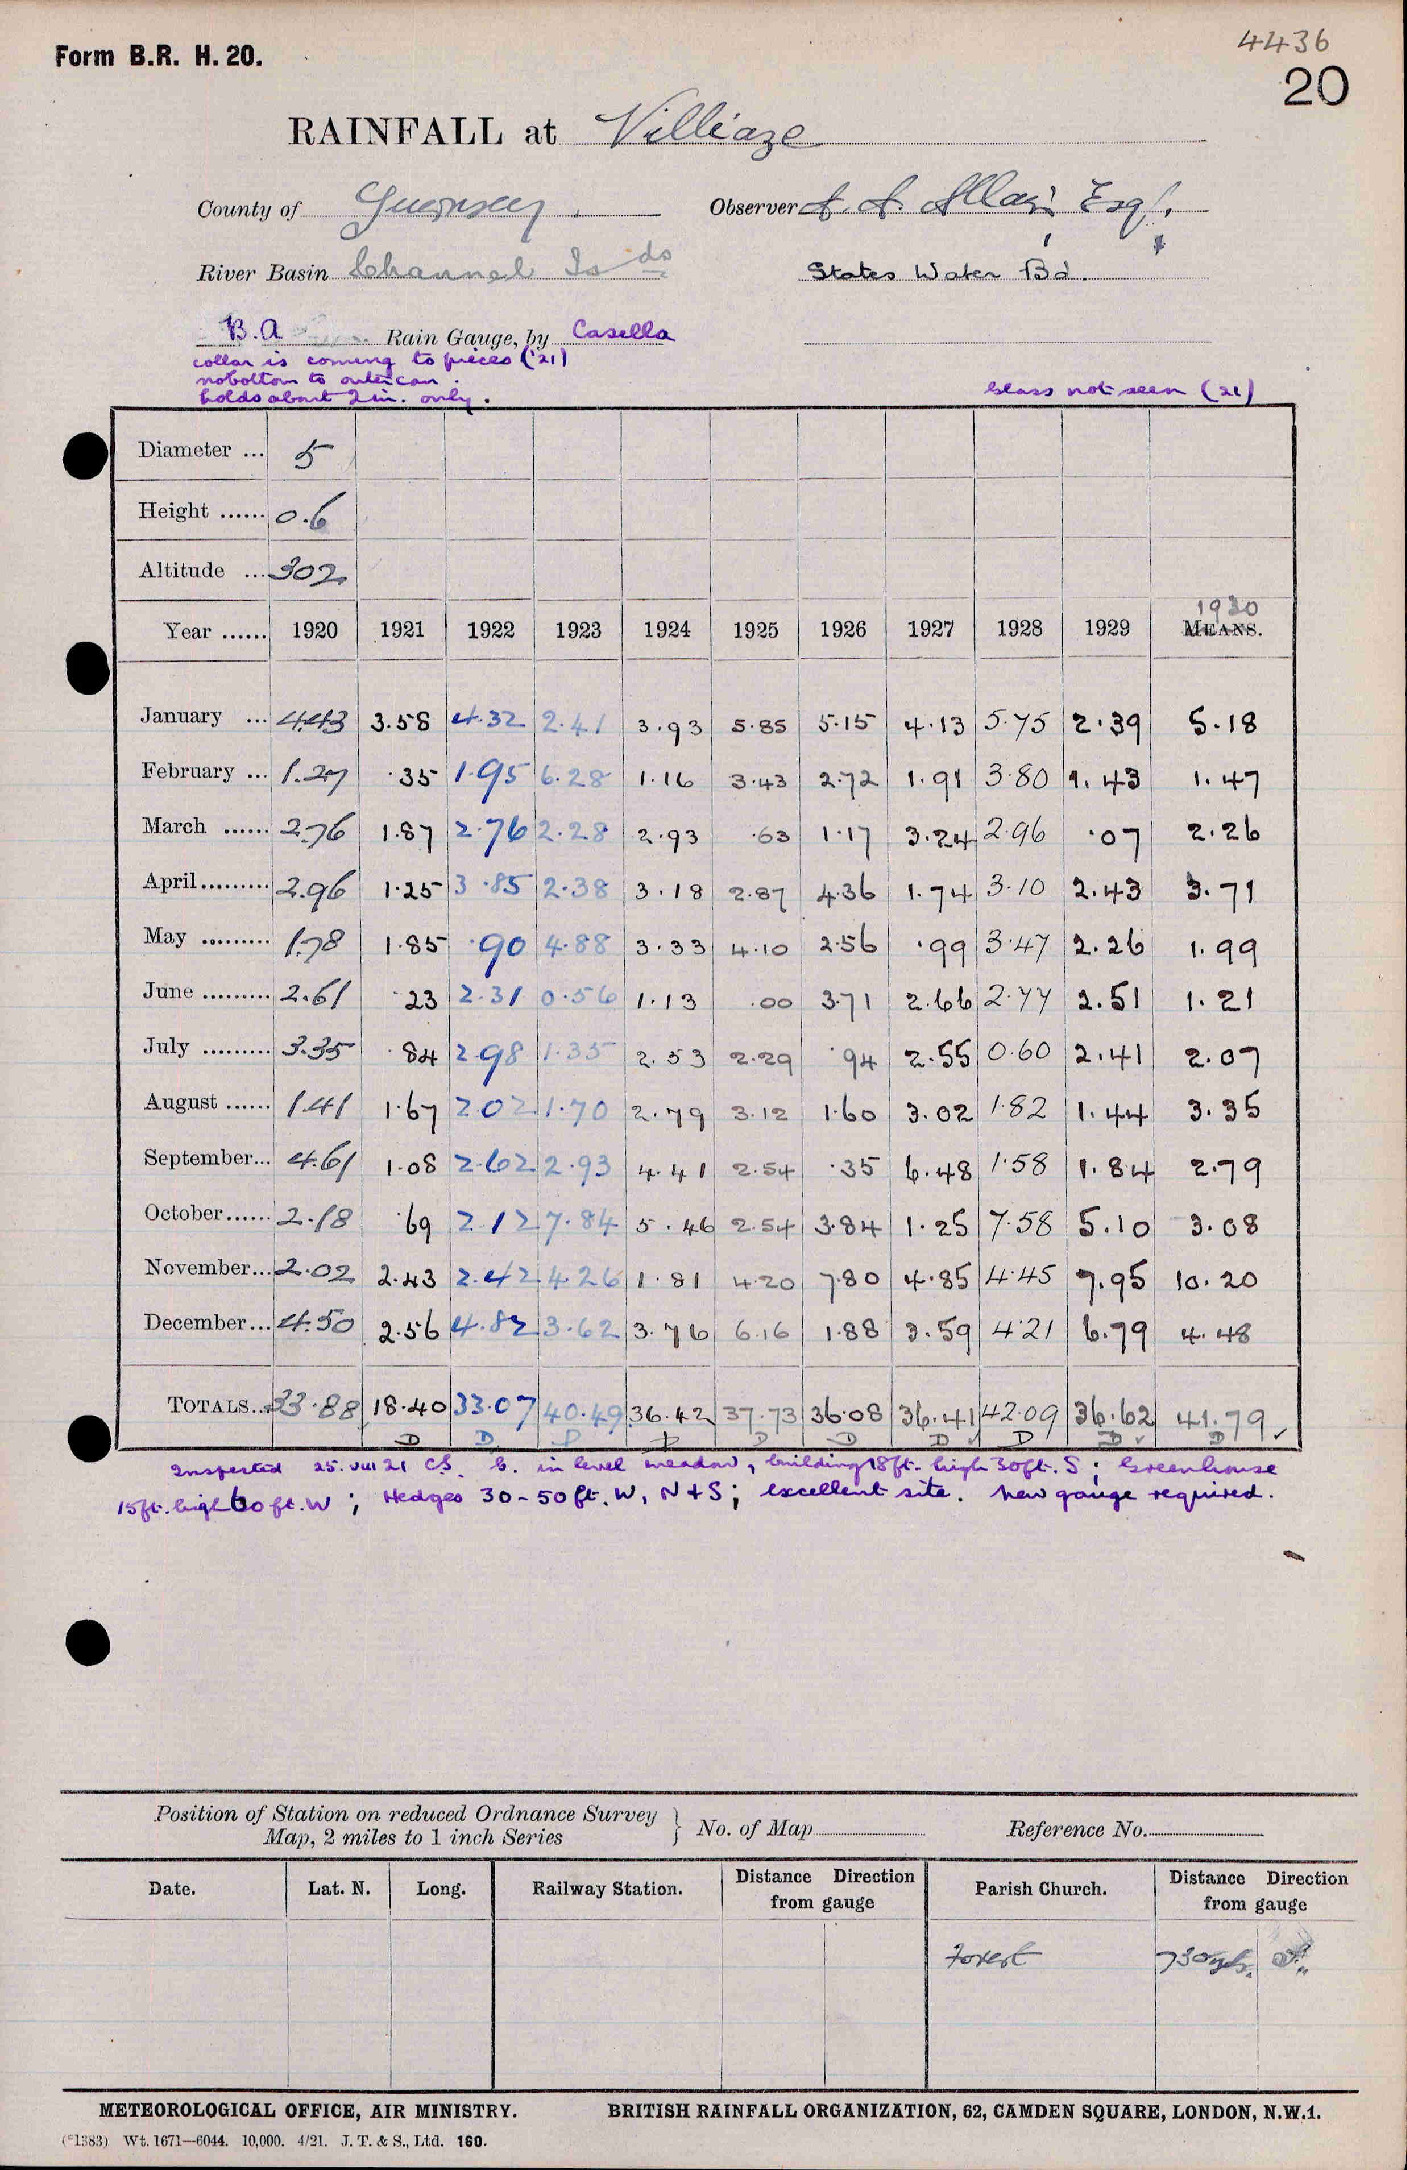 4436
Form B.R. H. 20.
20
RAINFALL at Villiaze
County of Guernsey. Observer A. A. Allair Esqr.
River Basin Channel Is ds States Water Bd.
B.A Rain Gauge, by Casella
collar is coming to pieces ('21)
no bottom to outer can.
holds about 2 in. only. Glass not seen (21)
Diameter ... 5
Height ...... 0.6
Altitude ... 302
1930
Year ...... 1920 1921 1922 1923 1924 1925 1926 1927 1928 1929 MEANS.
January ... 4.43 3.58 4.32 2.41 3.93 5.85 5.15 4.13 5.75 2.39 5.18
February ... 1.27 .35 1.95 6.28 1.16 3.43 2.72 1.91 3.80 1.43 1.47
March ...... 2.76 1.87 2.76 2.28 2.93 .63 1.17 3.24 2.96 .07 2.26
April......... 2.96 1.25 3.85 2.38 3.18 2.87 4.36 1.74 3.10 2.43 3.71
May ......... 1.78 1.85 .90 4.88 3.33 4.10 2.56 .99 3.47 2.26 1.99
June ......... 2.61 .23 2.31 0.56 1.13 .00 3.71 2.66 2.77 2.51 1.21
July ......... 3.35 .84 2.98 1.35 2.53 2.29 .94 2.55 0.60 2.41 2.07
August ...... 1.41 1.67 2.02 1.70 2.79 3.12 1.60 3.02 1.82 1.44 3.35
September... 4.61 1.08 2.62 2.93 4.41 2.54 .35 6.48 1.58 1.84 2.79
October...... 2.18 .69 2.12 7.84 5.46 2.54 3.84 1.25 7.58 5.10 3.08
November... 2.02 2.43 2.42 4.26 1.81 4.20 7.80 4.85 4.45 7.95 10.20
December... 4.50 2.56 4.82 3.62 3.76 6.16 1.88 3.59 4.21 6.79 4.48
TOTALS... 33.88 18.40 33.07 40.49 36.42 37.73 36.08 36.41 42.09 36.62 41.79
D D D D D D D D D D
Inspected 25.VIII 21 C.S. G. in level meadow, building 18ft. high 30ft. S; Greenhouse
15ft. high 60 ft. W; Hedges 30-50 ft. W, N + S; excellent site. New gauge required.
Position of Station on reduced Ordnance Survey
Map, 2 miles to 1 inch Series } No. of Map Reference No.
Date. Lat. N. Long. Railway Station. Distance Direction from gauge Parish Church. Distance Direction from gauge
Forest 730 yds.
METEOROLOGICAL OFFICE, AIR MINISTRY. BRITISH RAINFALL ORGANIZATION, 62, CAMDEN SQUARE, LONDON, N.W.1.
(*1383) Wt. 1671—6044. 10,000. 4/21. J. T. & S., Ltd. 160.